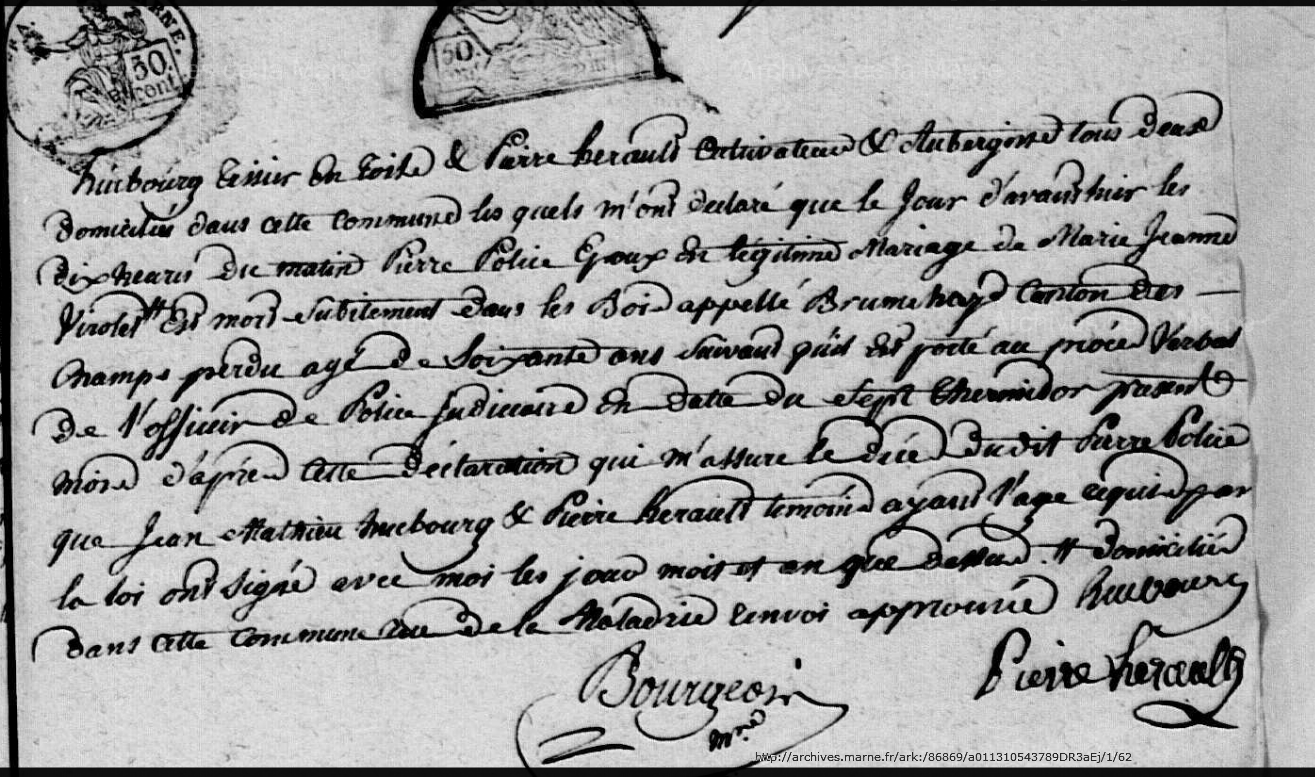 RNE.
50.
cent
50.
hurbourg tissier en toile & Pierre herault Cultivateur & Aubergiste tous deux
domiciliés dans cette Commune les quels m'ont declaré que le Jour d'avanthier les
dix heures du matin Pierre Police Epoux en légitime Mariage de Marie Jeanne
Virolet # Est mort subitement dans les Bois appellé Brumehays Canton des —
Champs perdu agé de Soixante ans suivant qu'il Est porté au procé Verbal
de l'officier de Police Judiciaire en datte du sept thermidor present
mois d'après Cette déclaration qui m'assure le décé dudit Pierre Police
que Jean Mathieu hurbourg & Pierre herault temoins ayant l'age requis par
la loi ont Signé avec moi les jour mois et an que dessus. # domicilié
dans cette Commune rue de la Maladrie renvoi approuvé hurbourg
Pierre herault
Bourgeois
mre
http://archives.marne.fr/ark:/86869/a011310543789DR3aEj/1/62